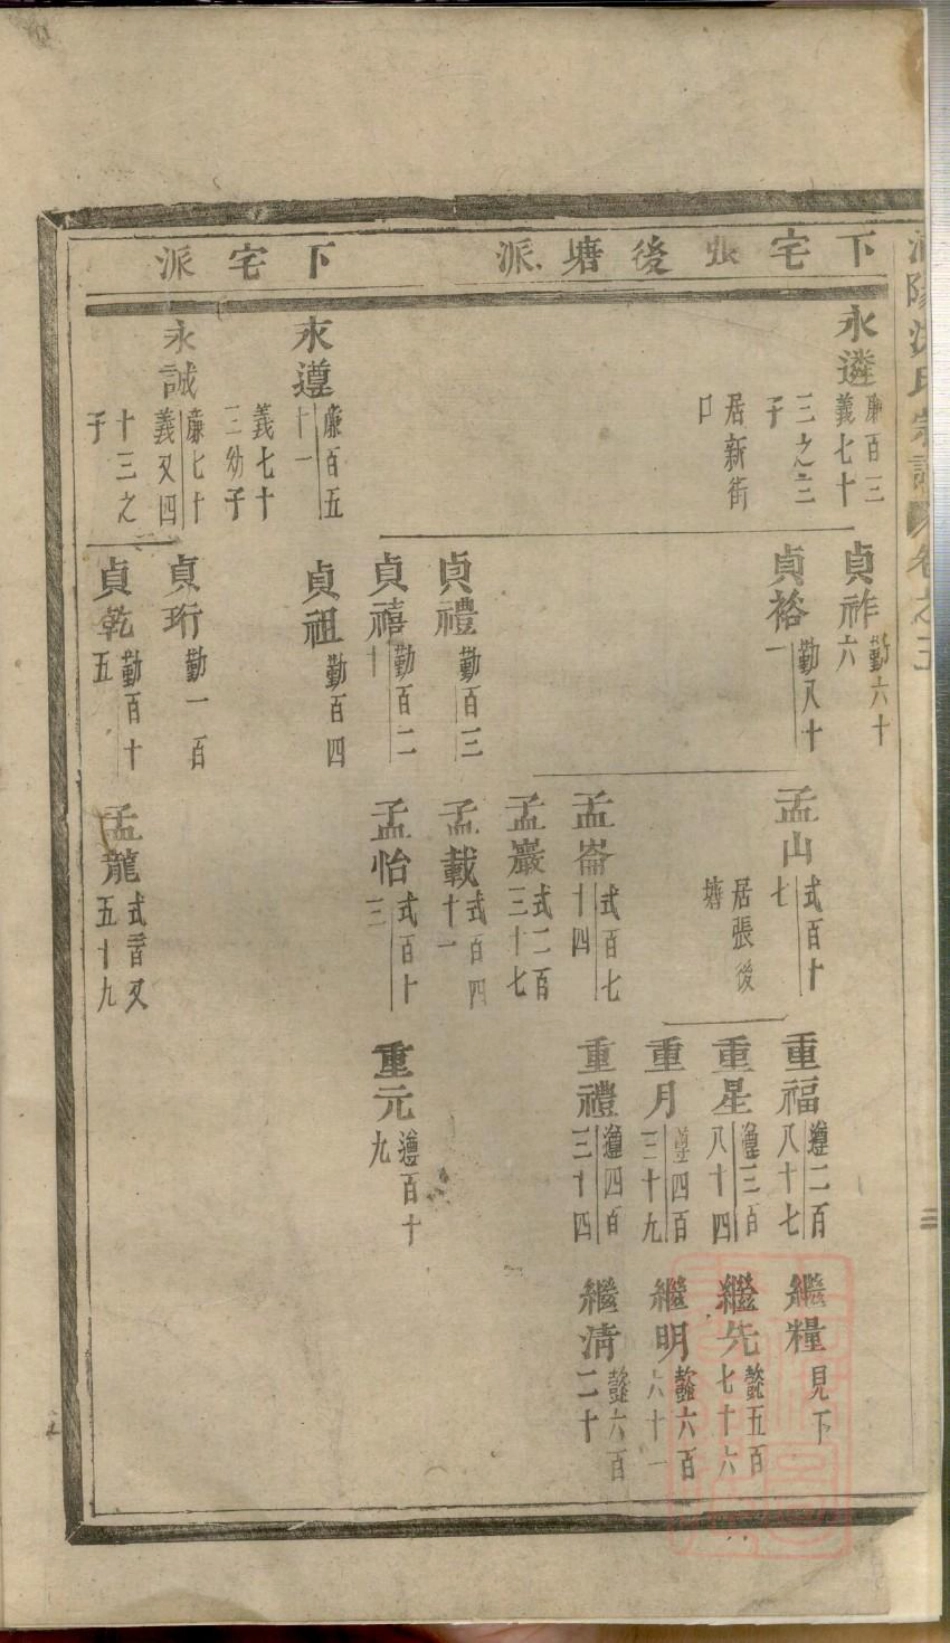 下宅張後塘派
下宅派
永遴
廉百三
義七十
三之三
子
居新街
口
永遵
廉百五
十一
義七十
三幼子
永誠
廉七十
義又四
十三之
子
貞祚
勤六十
六
貞裕
勤八十
一
貞禮
勤百三
貞禧
勤百二
十
貞祖
勤百四
貞珩
勤一百
貞乾
勤百十
五
孟山
式百十
七
居張後
塘
孟崙
式百七
十四
孟巖
式二百
三十七
孟載
式百四
十一
孟怡
式百十
三
孟龍
式百又
五十九
重福
遵二百
八十七
重星
遵三百
八十四
重月
遵四百
三十九
重禮
遵四百
三十四
重元
遵百十
九
繼糧
見下
繼先
懿五百
七十六
繼明
懿六百
六十一
繼清
懿六百
二十
氏宗譜
卷之
三